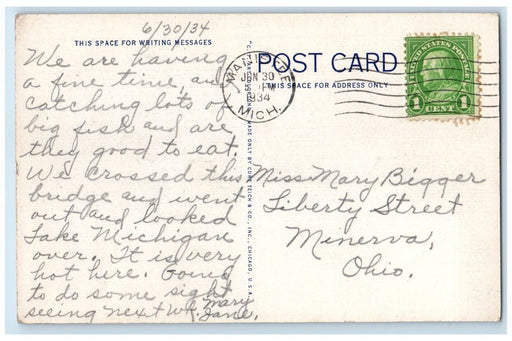 6/30/34
THIS SPACE FOR WRITING MESSAGES
We are having
a fine time, and
catching lots of
big fish and are
they good to eat.
We crossed this
bridge and went
out and looked
Lake Michigan
over. It is very
hot here. Going
to do some sight
seeing next wk.
Mary
Jane.
MADE ONLY BY CURT TECH & CO., INC., CHICAGO, U.S.A.
POST CARD
THIS SPACE FOR ADDRESS ONLY
JUN 30
PM
1934
MICH.
UNITED STATES POSTAGE
1 CENT 1
Miss Mary Bigger
Liberty Street
Minerva,
Ohio.